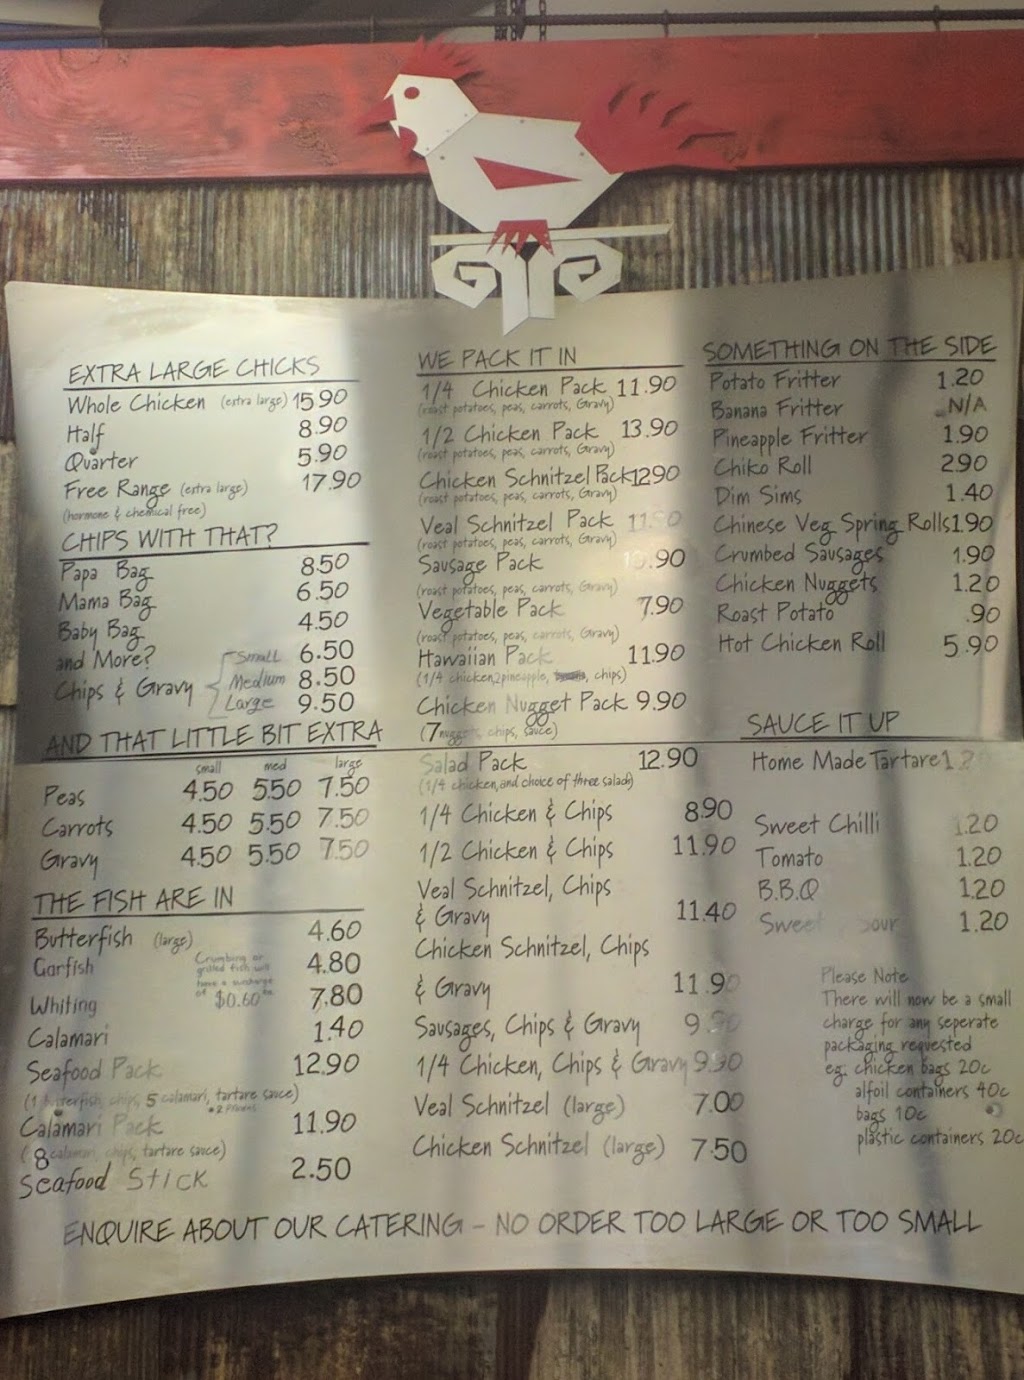 EXTRA LARGE CHICKS
Whole Chicken (extra large) 15.90
Half 8.90
Quarter 5.90
Free Range (extra large) 17.90
(hormone & chemical free)
CHIPS WITH THAT?
Papa Bag 8.50
Mama Bag 6.50
Baby Bag 4.50
and More?
Chips & Gravy
Small 6.50
Medium 8.50
Large 9.50
AND THAT LITTLE BIT EXTRA
small med large
Peas 4.50 5.50 7.50
Carrots 4.50 5.50 7.50
Gravy 4.50 5.50 7.50
THE FISH ARE IN
Butterfish (large) 4.60
Garfish 4.80
Crumbing or
grilled fish will
have a surcharge
of $0.60
Whiting 7.80
Calamari 1.40
Seafood Pack 12.90
(1 butterfish, chips, 5 calamari, tartare sauce)
• 2 prawns
Calamari Pack 11.90
(8 calamari, chips, tartare sauce)
Seafood STICK 2.50
WE PACK IT IN
1/4 Chicken Pack 11.90
(roast potatoes, peas, carrots, Gravy)
1/2 Chicken Pack 13.90
(roast potatoes, peas, carrots, Gravy)
Chicken Schnitzel Pack 12.90
(roast potatoes, peas, carrots, Gravy)
Veal Schnitzel Pack
(roast potatoes, peas, carrots, Gravy)
Sausage Pack
(roast potatoes, peas, carrots, Gravy)
Vegetable Pack 7.90
(roast potatoes, peas, carrots, Gravy)
Hawaiian Pack 11.90
(1/4 chicken, 2 pineapple, chips)
Chicken Nugget Pack 9.90
(7 nuggets, chips, sauce)
Salad Pack 12.90
(1/4 chicken, and choice of three salads)
1/4 Chicken & Chips 8.90
1/2 Chicken & Chips 11.90
Veal Schnitzel, Chips
& Gravy 11.40
Chicken Schnitzel, Chips
& Gravy 11.90
Sausages, Chips & Gravy
1/4 Chicken, Chips & Gravy 9.90
Veal Schnitzel (large) 7.00
Chicken Schnitzel (large) 7.50
SOMETHING ON THE SIDE
Potato Fritter 1.20
Banana Fritter N/A
Pineapple Fritter 1.90
Chiko Roll 2.90
Dim Sims 1.40
Chinese Veg Spring Rolls 1.90
Crumbed Sausages 1.90
Chicken Nuggets 1.20
Roast Potato .90
Hot Chicken Roll 5.90
SAUCE IT UP
Home Made Tartare 1.20
Sweet Chilli 1.20
Tomato 1.20
B.B.Q 1.20
Sweet 1.20
Please Note
There will now be a small
charge for any seperate
packaging requested
eg: chicken bags 20c
alfoil containers 40c
bags 10c
plastic containers 20c
ENQUIRE ABOUT OUR CATERING - NO ORDER TOO LARGE OR TOO SMALL